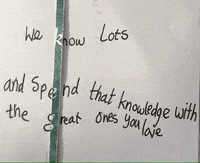 We know Lots
and Spend that knowledge with
the great ones you love